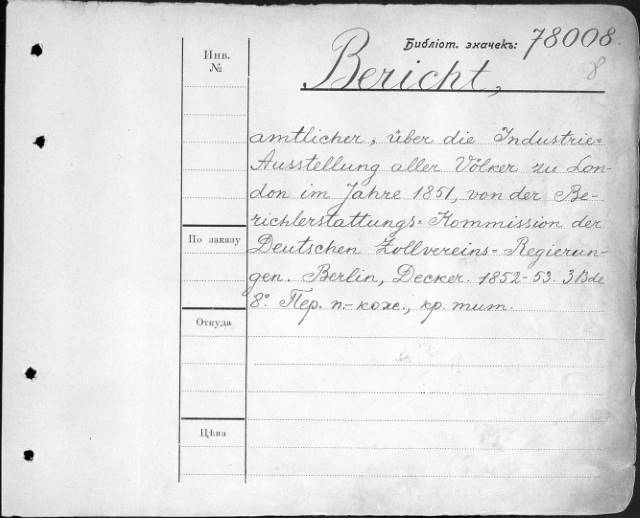 Библіот. значекъ: 78008.
8
Инв.
№
Bericht,
amtlicher, über die Industrie=
Ausstellung aller Völker zu Lon-
don im Jahre 1851, von der Be-
richterstattungs= Kommission der
По заказу
Deutschen Zollvereins= Regierun-
gen. Berlin, Decker. 1852-53. 3 Bde
8º Пер. п.-кожс., кр. тит.
Откуда
Цѣна